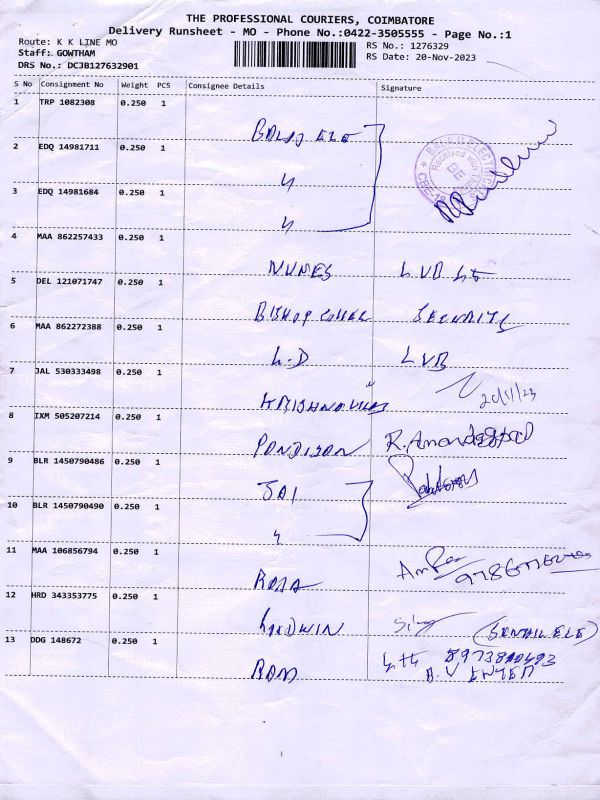 THE PROFESSIONAL COURIERS, COIMBATORE
Delivery Runsheet - MO - Phone No.:0422-3505555 - Page No.:1
Route: K K LINE MO
RS No.: 1276329
Staff: GOWTHAM
RS Date: 20-Nov-2023
DRS No.: DCJB127632901
S No Consignment No Weight PCS Consignee Details Signature
1 TRP 1082308 0.250 1
BALAJ ELE
2 EDQ 14981711 0.250 1
3 EDQ 14981684 0.250 1
4 MAA 862257433 0.250 1
NUMES LVB
5 DEL 121071747 0.250 1
BISHOP SECURITY
6 MAA 862272388 0.250 1
L.D LVB
7 JAL 530333498 0.250 1
20/11/23
KRISHNA
8 IXM 505207214 0.250 1
9 BLR 1450790486 0.250 1
JAI
10 BLR 1450790490 0.250 1
11 MAA 106856794 0.250 1
ROJA
12 HRD 343353775 0.250 1
GOODWIN
13 DDG 148672 0.250 1
RAM